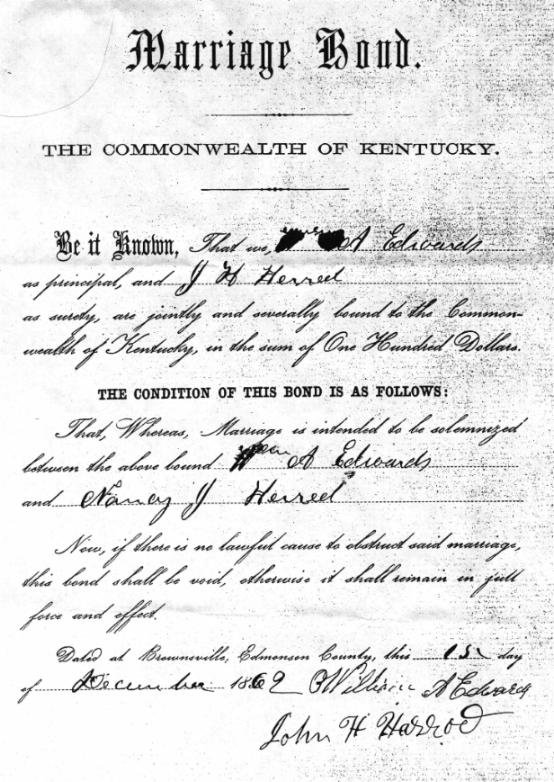 Marriage Bond.
THE COMMONWEALTH OF KENTUCKY.
Be it Known, That we, A Edwards
as principal, and J H Herrel
as surety, are jointly and severally bound to the Common-
wealth of Kentucky, in the sum of One Hundred Dollars.
THE CONDITION OF THIS BOND IS AS FOLLOWS:
That, Whereas, Marriage is intended to be solemnized
between the above bound A Edwards
and Nancy J Herrel
Now, if there is no lawful cause to obstruct said marriage,
this bond shall be void, otherwise it shall remain in full
force and effect.
Dated at Brownsville, Edmonson County, this day
of December 1869 William A Edwards
John H Harrod